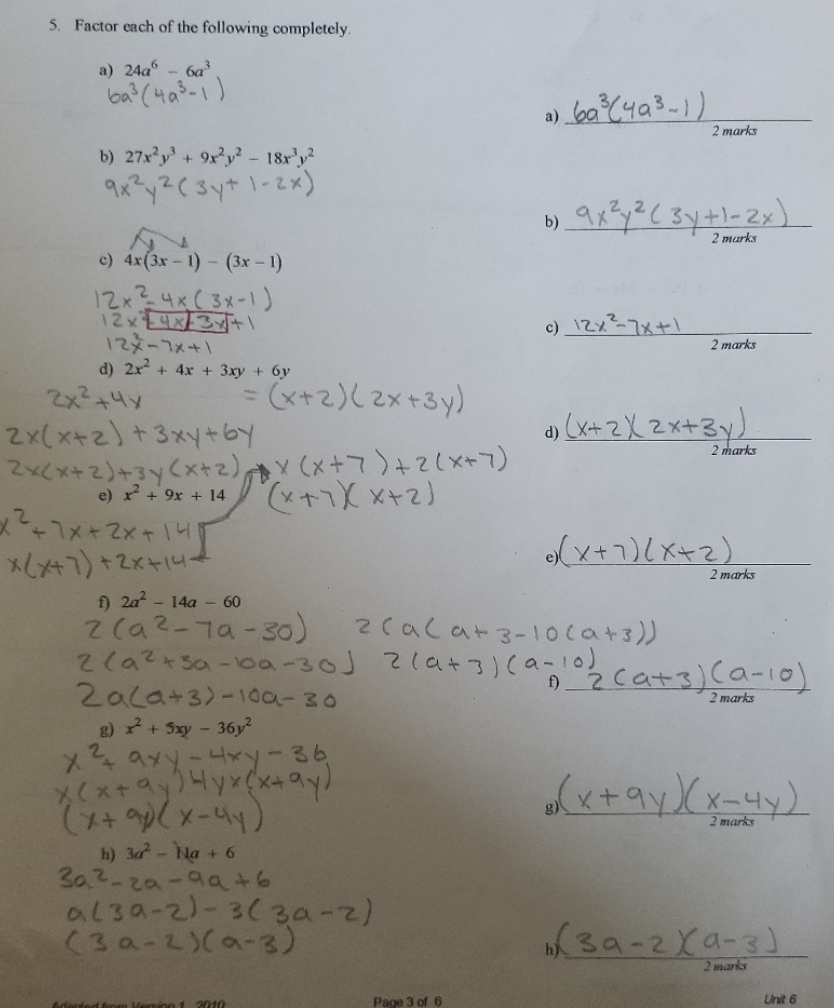 5. Factor each of the following completely.
a) 24a⁶ - 6a³
6a³(4a³-1)
a) 6a³(4a³-1)
2 marks
b) 27x²y³ + 9x²y² - 18x³y²
9x²y²(3y+1-2x)
b) 9x²y²(3y+1-2x)
2 marks
c) 4x(3x - 1) - (3x - 1)
12x²-4x(3x-1)
12x²-4x-3x+1
12x²-7x+1
c) 12x²-7x+1
2 marks
d) 2x² + 4x + 3xy + 6y
2x²+4x = (x+2)(2x+3y)
2x(x+2)+3xy+6y
2x(x+2)+3y(x+2)
d) (x+2)(2x+3y)
2 marks
x(x+7)+2(x+7)
e) x² + 9x + 14 (x+7)(x+2)
x²+7x+2x+14
x(x+7)+2x+14
e) (x+7)(x+2)
2 marks
f) 2a² - 14a - 60
2(a²-7a-30) 2(a(a+3-10(a+3))
2(a²+3a-10a-30) 2(a+3)(a-10)
2a(a+3)-10a-30
f) 2(a+3)(a-10)
2 marks
g) x² + 5xy - 36y²
x²+9xy-4xy-36
x(x+9y)4yx(x+9y)
(x+9y)(x-4y)
g) (x+9y)(x-4y)
2 marks
h) 3a² - 11a + 6
3a²-2a-9a+6
a(3a-2)-3(3a-2)
(3a-2)(a-3)
h) (3a-2)(a-3)
2 marks
Adapted from Version 1, 2010 Page 3 of 6 Unit 6